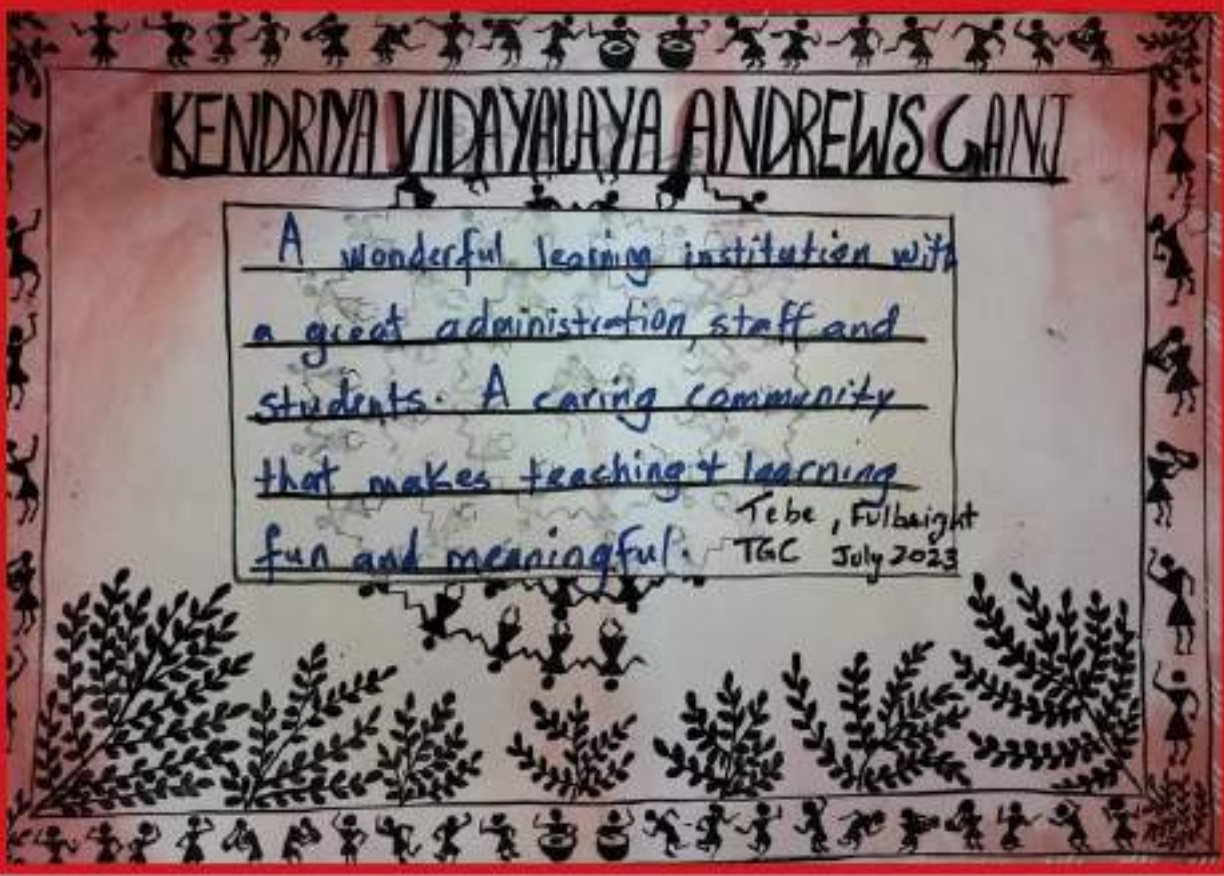 KENDRIYA VIDAYALAYA ANDREWS GANJ
A wonderful learning institution with
a great administration, staff and
students. A caring community
that makes teaching + learning
fun and meaningful.
Tebe, Fulbright
TGC July 2023